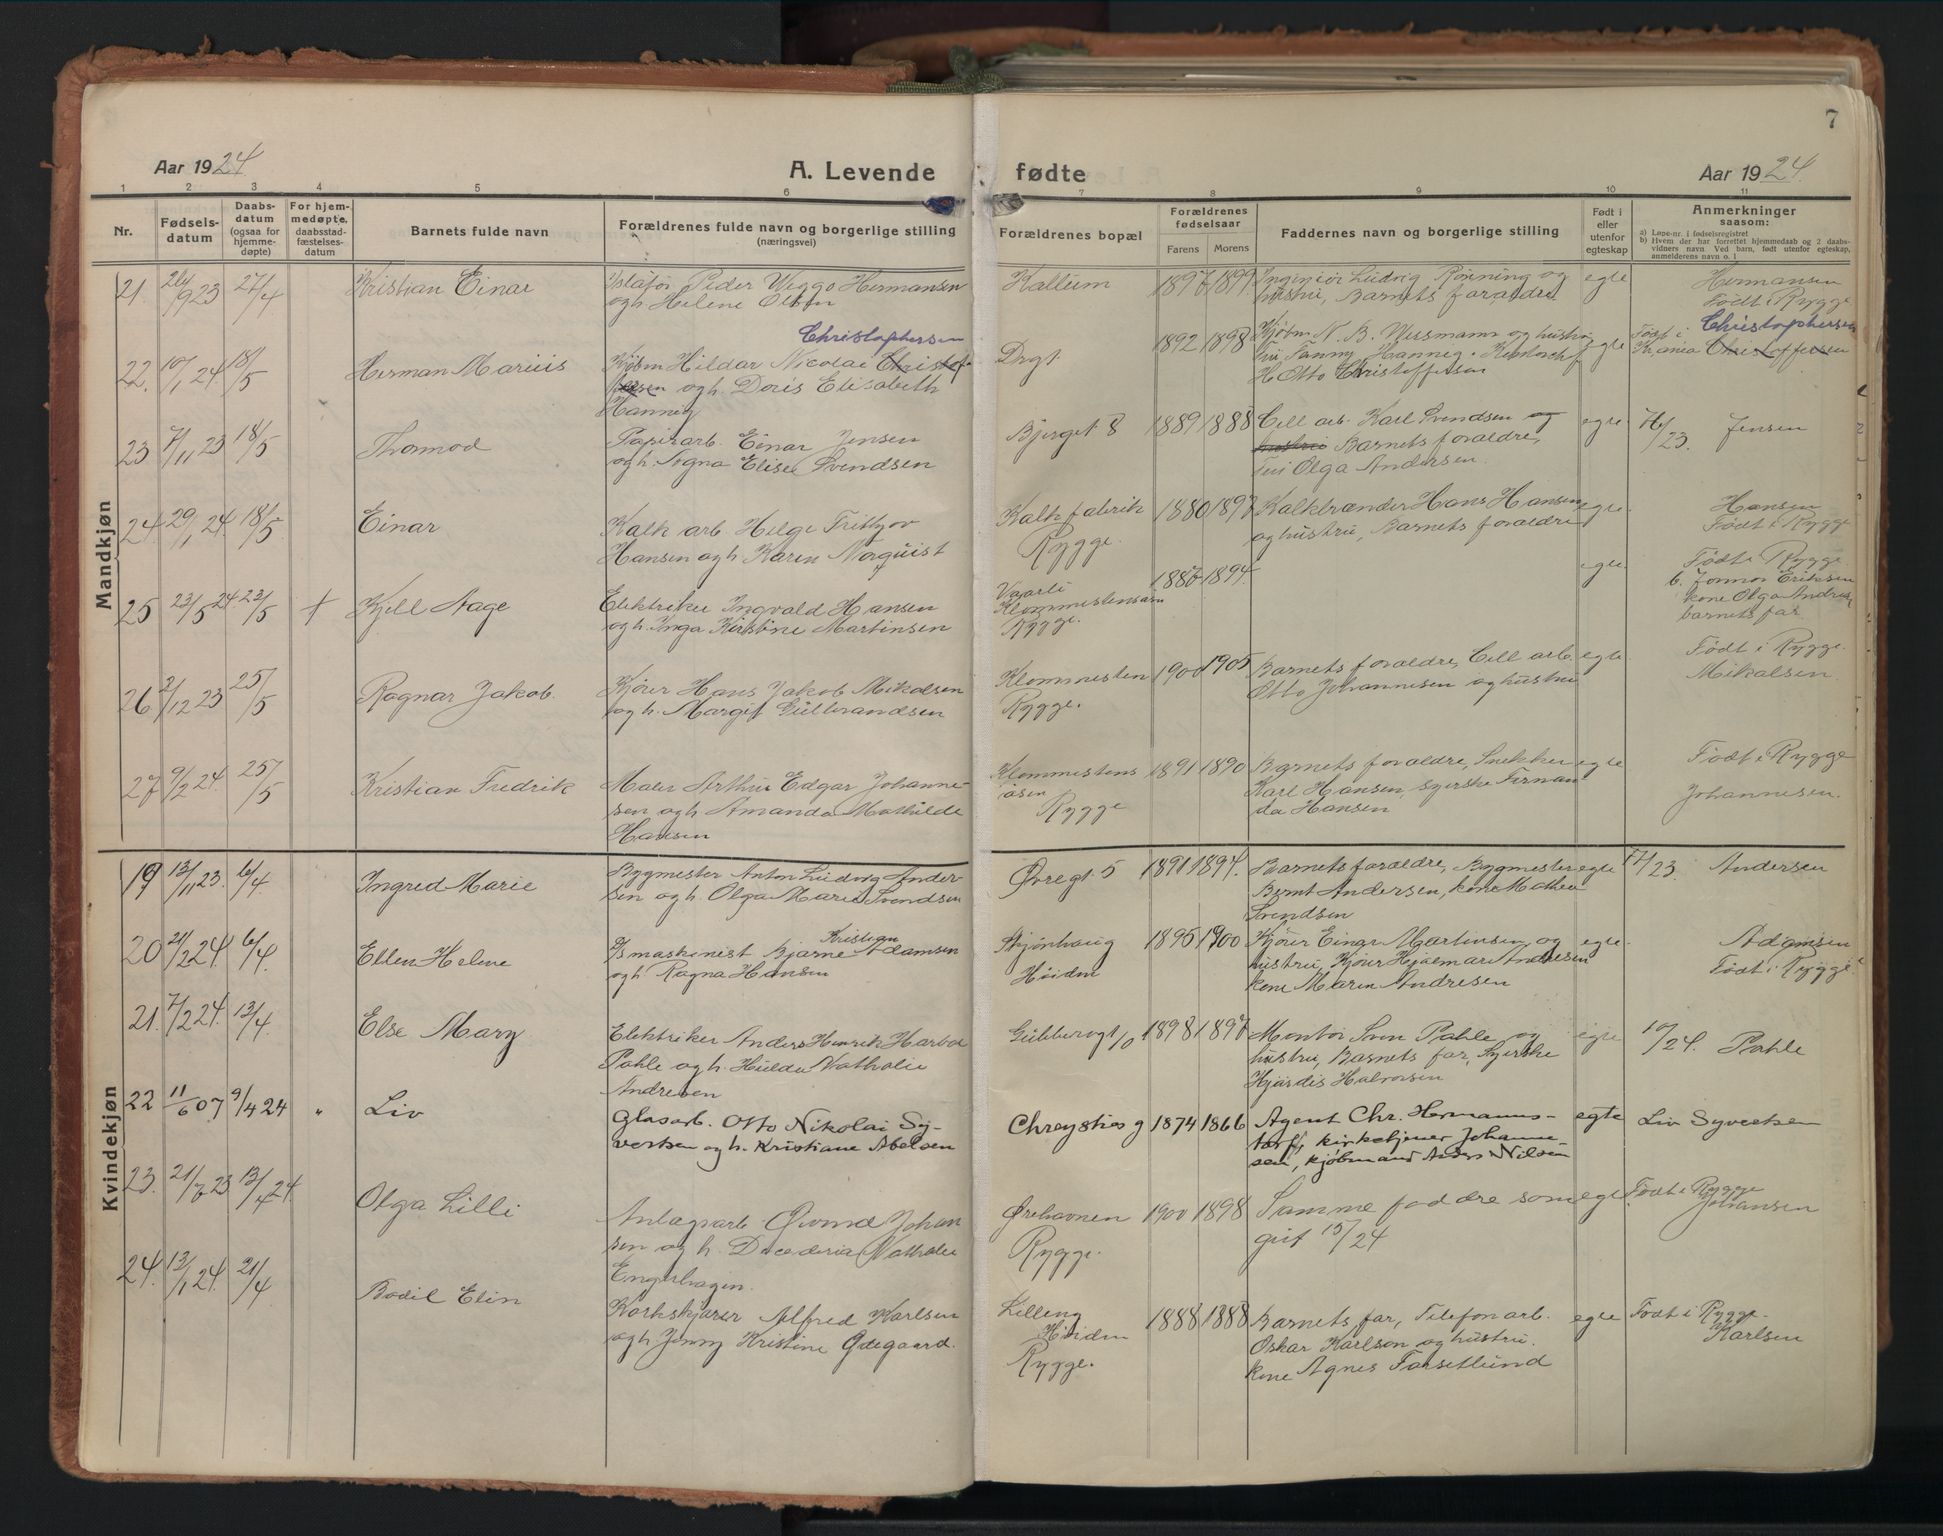 7
Aar 1924
A. Levende
fødte
Aar 1924.
1 2 3 4 5 6 7 8 9 10 11
Nr.
Fødsels-
datum
Daabs-
datum
(ogsaa for
hjemme-
døpte)
For hjem-
medøpte,
daabsstad-
fæstelses-
datum
Barnets fulde navn
Forældrenes fulde navn og borgerlige stilling
(næringsvei)
Forældrenes bopæl
Forældrenes
fødselsaar
Farens Morens
Faddernes navn og borgerlige stilling
Født i
eller
utenfor
egteskap
Anmerkninger
saasom:
a) Løpe-nr. i fødselsregistret
b) Hvem der har forrettet hjemmedaab og 2 daabs-
vidners navn. Ved barn, født utenfor egteskap,
anmelderens navn o. l.
Mandkjøn
21. 9 23 27/4 Kristian Einar
Peder Wiggo Hermansen
og h. Helene Olsen
Kallum 1897 1899 Ingeniør Ludvig Rønning og
hustru, Barnets forældre
egte
Hermansen
Født i Rygge
22. 10/1 24 18/5 Herman Marius
Christophersen
Kjøbm Hildar Nicolai Christof-
fersen og h. Doris Elisabeth
Hannig
Drgt 1892 1898 Kjøbm N. B. Wessmann og hustru
Fanny Hannig.
H. Otto Christoffersen
egte
Født i Christophersen
Kr.ania Christoffersen
23 7/11 23 18/5 Thormod
Papirarb. Einar Jensen
og h. Signa Elise Svendsen
Bjerget 8 1889 1888 Cell arb. Karl Svendsen og
hustru Barnets forældre,
frü Olga Andersen.
egte
23. Jensen
24 29/1 24. 18/5 Einar
Kalk arb Helge Fritjov
Hansen og h. Karen Norquist
Kalk fabrik
Rygge.
1880 1897 Kalkbrænder Hans Hansen
og hustru, Barnets forældre
egte
Hansen
Født i Rygge
25 23/5 24 23/5 + Kjell Aage
Elektriker Ingvald Hansen
og h. Inga Kirstine Martinsen
Klommestensaasen
Rygge.
1894. egte
Født i Rygge
b. Jormor Eriksen
kone Olga Andres
barnets far
26 2/12 23 25/5 Ragnar Jakob.
Kjører Hans Jakob Mikalsen
og h. Margit Gulbrandsen
Klommesten
Rygge.
1900 1905 Barnets forældre, Cell arb.
Otto Johannesen og hustru
egte
Født i Rygge.
Mikalsen.
27 9/2 24. 25/5 Kristian Fredrik
Maler Arthur Edgar Johanne-
sen og h. Amanda Mathilde
Hansen
Klommestens
åsen
Rygge
1891 1890 Barnets forældre, Snekker
Karl Hansen, syerske Fernan
da Hansen
egte
Født i Rygge
Johannesen.
Kvindekjøn
19 13/11 23. 6/4 Ingred Marie
Bygmester Anton Ludvig Ander-
sen og h. Olga Marie Svendsen
Øvregt. 5 1891 1894. Barnets forældre, Bygmester
Bernt Andersen, kone Mathea
Svendsen
egte
17/23. Andersen
20 21/2 24. 6/4 Ellen Helene
Kristian
Ismaskinest Bjarne Adamsen
og h Ragna Hansen
Skjønhaug
Høiden
1895 1900 Kjører Einar Martinsen og
hustru, Kjører Hjalmar Andresen
kone Maren Andresen
egte.
Adamsen
Født i Rygge
21. 7/2 24. 13/4 Else Mary
Elektriker Anders Henrik Harbo
Pahle og h. Hulda Nathalie
Andresen
Gübberogt 10 1898 1897 Montør Sven Pahle og
hustru, Barnets far, Syerske
Hjørdis Halvorsen
egte
10/24. Pahle
22 11/6 07 9/4 24 " Liv
Glasarb. Otto Nikolai Sy-
vertsen og h. Kristiane Abelsen
Chrystiesg 1874 1866 Agent Chr. Hermanns-
torf, kirketjener Johanne-
sen, kjøbmand Anders Nilsen
egte
Liv Syvertsen
23. 21/7 23 13/4 24 Olga Lilli
Anlægsarb Øivind Johan
sen og h. Nathalie
Engelhagen.
Ørehavnen
Rygge.
1900 1898 Samme faddre som
gut 15/24
egte
Født i Rygge
Johansen
24. 13/1 24. 21/4 Bodil Elin
Korkskjærer Alfred Karlsen
og h Jenny Kristine Ødegaard.
Killeng
Høiden
Rygge.
1888 1888 Barnets far, Telefonarb.
Oskar Karlson og hustru.
kone Agnes Forsetlund
egte
Født i Rygge.
Karlsen